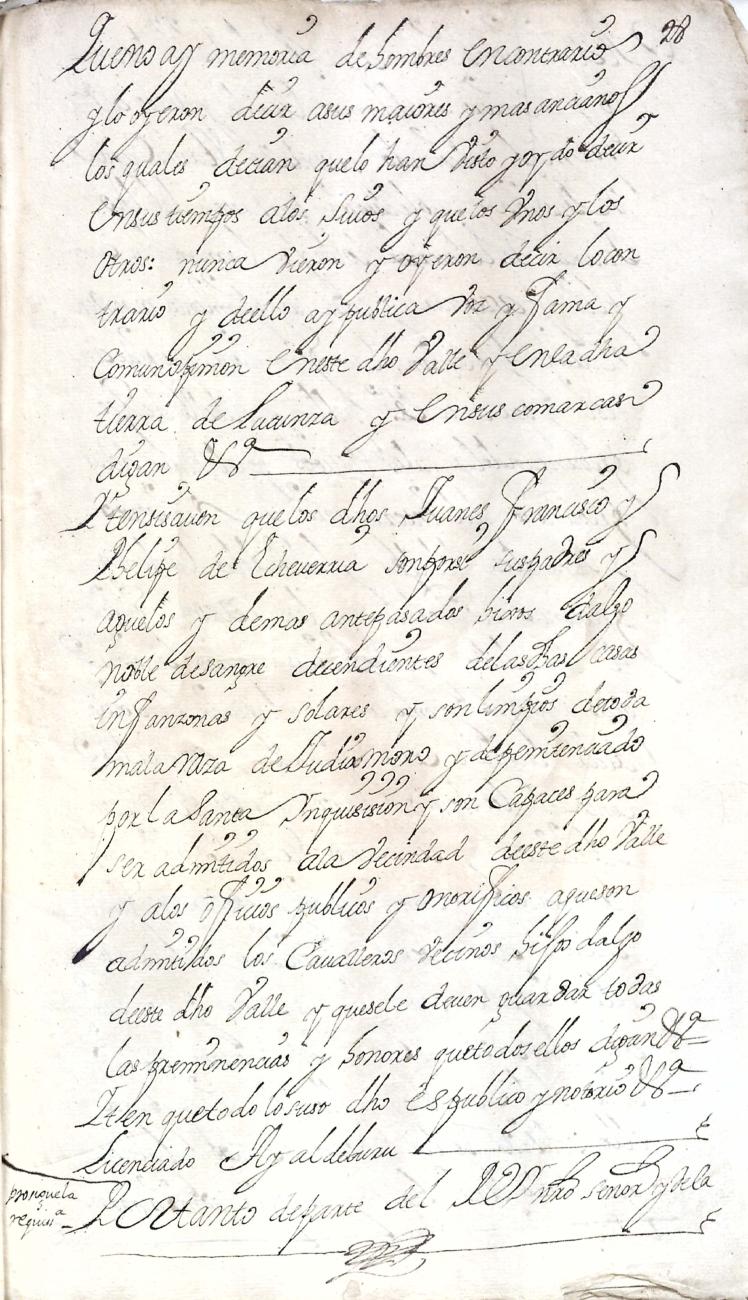 28
Quenoay memoria de hombres encontrario
ylo oyeron decir asus maiores ymasancianos
los quales decian quelo han visto yoydo decir
Ensus tiempos alos suios y quelos Vnos ylos
Otros: nunca vieron y oyeron decir locon
trario y deello ay publica Voz y fama y
Comunopinion Eneste dho Valle y Enladha
tierra de Lacunza y Ensus comarcas
digan &a
Yten sisaven quelos dhos Juanes Francisco y
Phelipe de Echeverria sonporsi suspadres y
aguelos y demas antepasados hixos dalgo
noble desangre decendientes delasdhas casas
infanzonas y solares y sonlimpios detoda
mala raza de Judio moro y depenitenciado
por la Santa Ynquisision y son Capaces para
ser admitidos ala Vecindad deeste dho Valle
y alos officios publicos y onorificos aqueson
admitidos los Cavalleros vecinos hijos dalgo
deeste dho Valle y quesele deven guardar todas
las preminencias y honores quetodosellos digan &a
Yten quetodo losuso dho es publico ynotorio &a
Licenciado Ayaldeburu
pronquela
requisa
Por tanto departe del Rey nro señor y dela